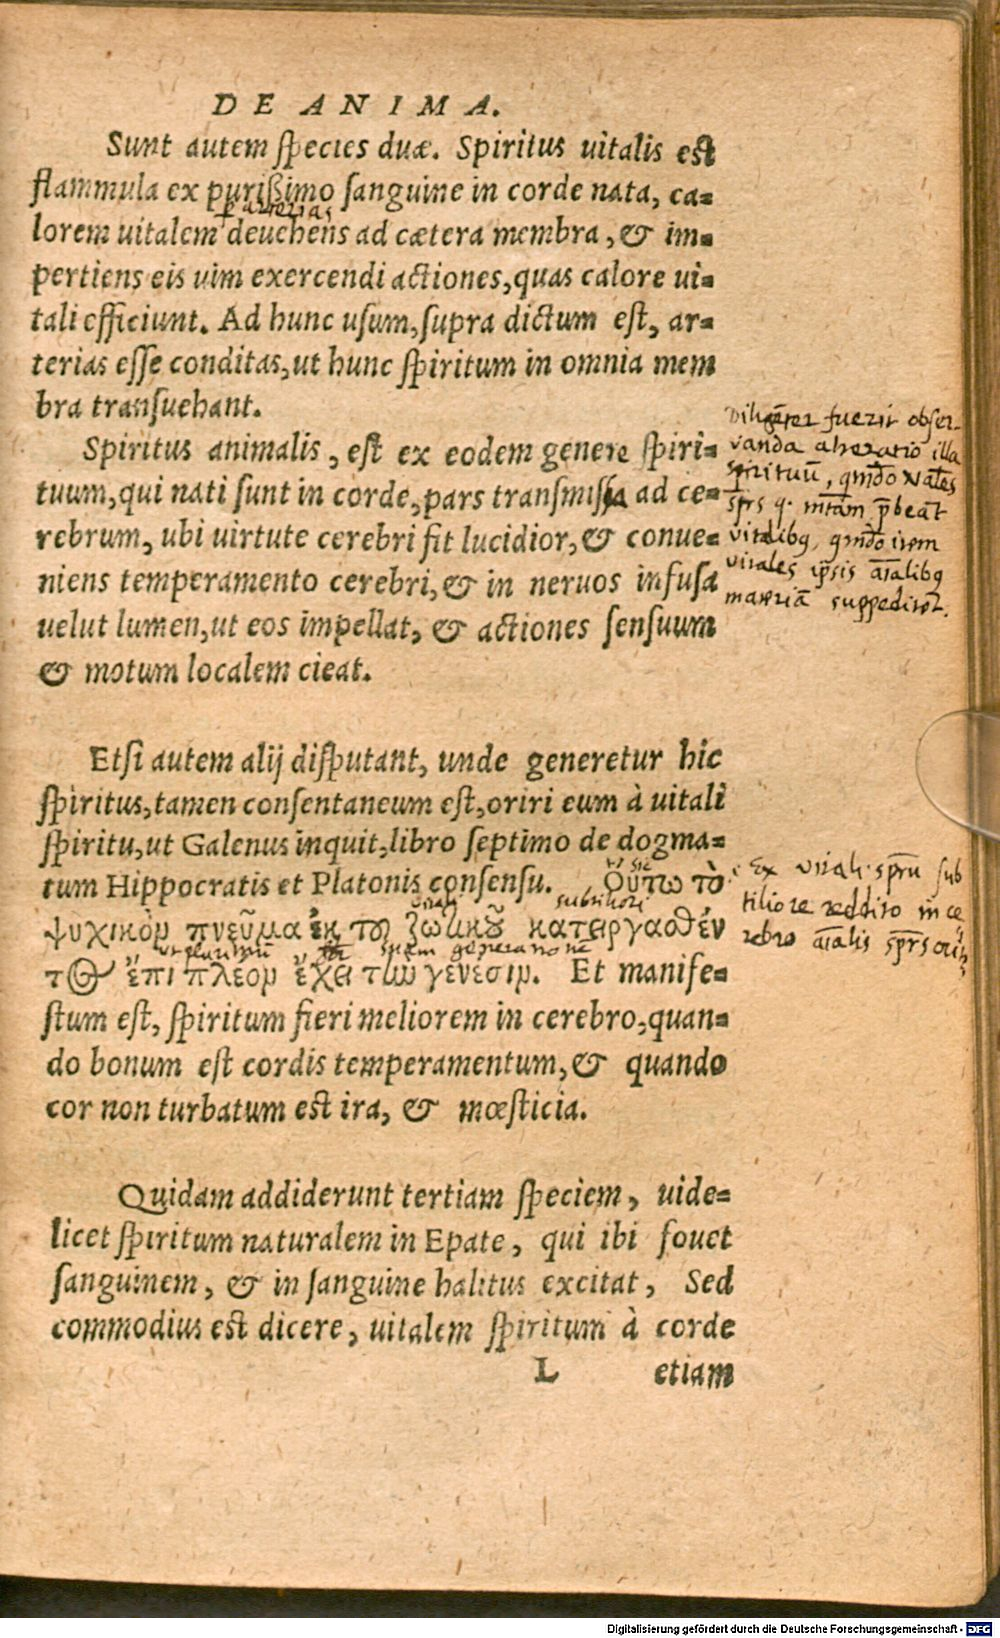 DE ANIMA.
Sunt autem species duæ. Spiritus uitalis est
flammula ex purißimo sanguine in corde nata, ca-
p arterias
lorem uitalem deuehens ad cætera membra, & im-
pertiens eis uim exercendi actiones, quas calore ui-
tali efficiunt. Ad hunc usum, supra dictum est, ar-
terias esse conditas, ut hunc spiritum in omnia mem
bra transuehant.
Spiritus animalis, est ex eodem genere spiri-
tuum, qui nati sunt in corde, pars transmissa ad ce-
rebrum, ubi uirtute cerebri fit lucidior, & conue-
niens temperamento cerebri, & in neruos infusa
uelut lumen, ut eos impellat, & actiones sensuum
& motum localem cieat.
Diligēter fuerit obser-
vanda alteratio illa
spirituū, qmdo nāles
sprs q. mtām pbeāt
vitalibq, qmdo item
vitales ipsis aīalibq
materiā suppeditēt.
Etsi autem alij disputant, unde generetur hic
spiritus, tamen consentaneum est, oriri eum à uitali
spiritu, ut Galenus inquit, libro septimo de dogma-
tum Hippocratis et Platonis consensu. Οὕτω τὸ
sic
ψυχικὸν πνεῦμα ἐκ τοῦ ζωτικοῦ κατεργασθέν
vitali subtiliori
τος ἐπὶ πλέον ἔχει τὴν γένεσιν. Et manife-
suam generationē
stum est, spiritum fieri meliorem in cerebro, quan-
do bonum est cordis temperamentum, & quando
cor non turbatum est ira, & mœsticia.
Ex vitali sprū sub
tiliore reddito in ce
rebro aīalis sprs
Quidam addiderunt tertiam speciem, uide-
licet spiritum naturalem in Epate, qui ibi fouet
sanguinem, & in sanguine halitus excitat, Sed
commodius est dicere, uitalem spiritum à corde
L etiam
Digitalisierung gefördert durch die Deutsche Forschungsgemeinschaft - DFG